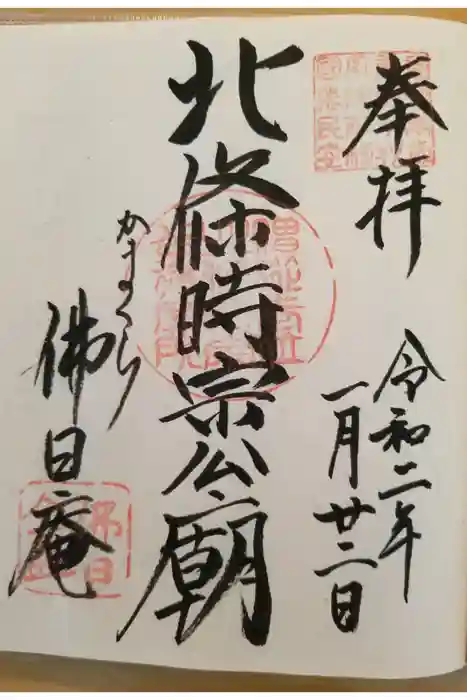 奉拝
令和二年
一月廿二日
北條時宗公廟
かまくら
佛日庵
佛日